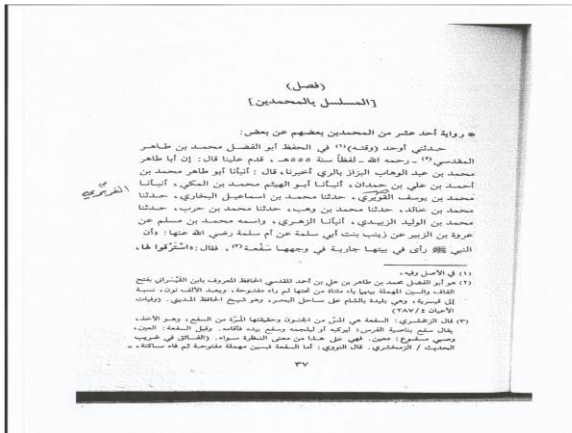 (فصل)
[المسلسل بالمحمدين]
* رواية أحد عشر من المحمدين بعضهم عن بعض:
حدثني أوحد (وقته)(١) في الحفظ أبو الفضل محمد بن طاهر
المقدسي(٢) - رحمه الله - لفظاً سنة ٥٥٥هـ، قدم علينا قال: إن أبا طاهر
محمد بن عبد الوهاب البزاز بالري أخبرنا، قال: أنبأنا أبو طاهر محمد بن
أحمد بن علي بن حمدان، أنبأنا أبو الهيثم محمد بن المكي، أنبأنا
محمد بن يوسف القويري، حدثنا محمد بن اسماعيل البخاري، حدثنا
الفربري
محمد بن خالد، حدثنا محمد بن وهب، حدثنا محمد بن حرب، حدثنا
محمد بن الوليد الزبيدي، أنبأنا الزهري، واسمه محمد بن مسلم عن
عروة بن الزبير عن زينب بنت أبي سلمة عن أم سلمة رضي الله عنها: «أن
النبي ﷺ رأى في بيتها جارية في وجهها سَفْعة(٣)، فقال: «اسْتَرْقوا لها،
(١) في الأصل وفيه.
(٢) هو أبو الفضل محمد بن طاهر بن علي بن أحمد المقدسي الحافظ المعروف بابن القَيْسراني بفتح
القاف والسين المهملة بينهما ياء مثناة من تحتها ثم راء مفتوحة، وبعد الألف نون، نسبة
إلى قيسرية، وهي بليدة بالشام على ساحل البحر، وهو شيخ الحافظ المديني. (وفيات
الأعيان ٢٨٧/٤)
(٣) قال الزمخشري: السفعة هي المسّ من الجنون وحقيقتها المَرّة من السفع، وهو الأخذ،
يقال سفع بناصية الفرس: ليركبه أو ليلجمه وسفع بيده فأقامه. وقيل السفعة: العين،
وصبي مسفوع: معين. فهي على هذا من معنى النظرة سواء. (الفائق في غريب
الحديث / الزمخشري. قال النووي: أما السفعة فبسين مهملة مفتوحة ثم فاء ساكنة، =
٣٧